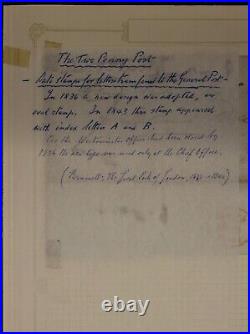 The Two Penny Post
- Date stamps for letters transferred to the General Post -
In 1836 a new design was adopted, an
oval stamp. In 1843 this stamp appeared
with index letter A and B.
the Westminster Office had been closed by
1834 the new type was used only at the Chief Office.
The Local Posts of London,